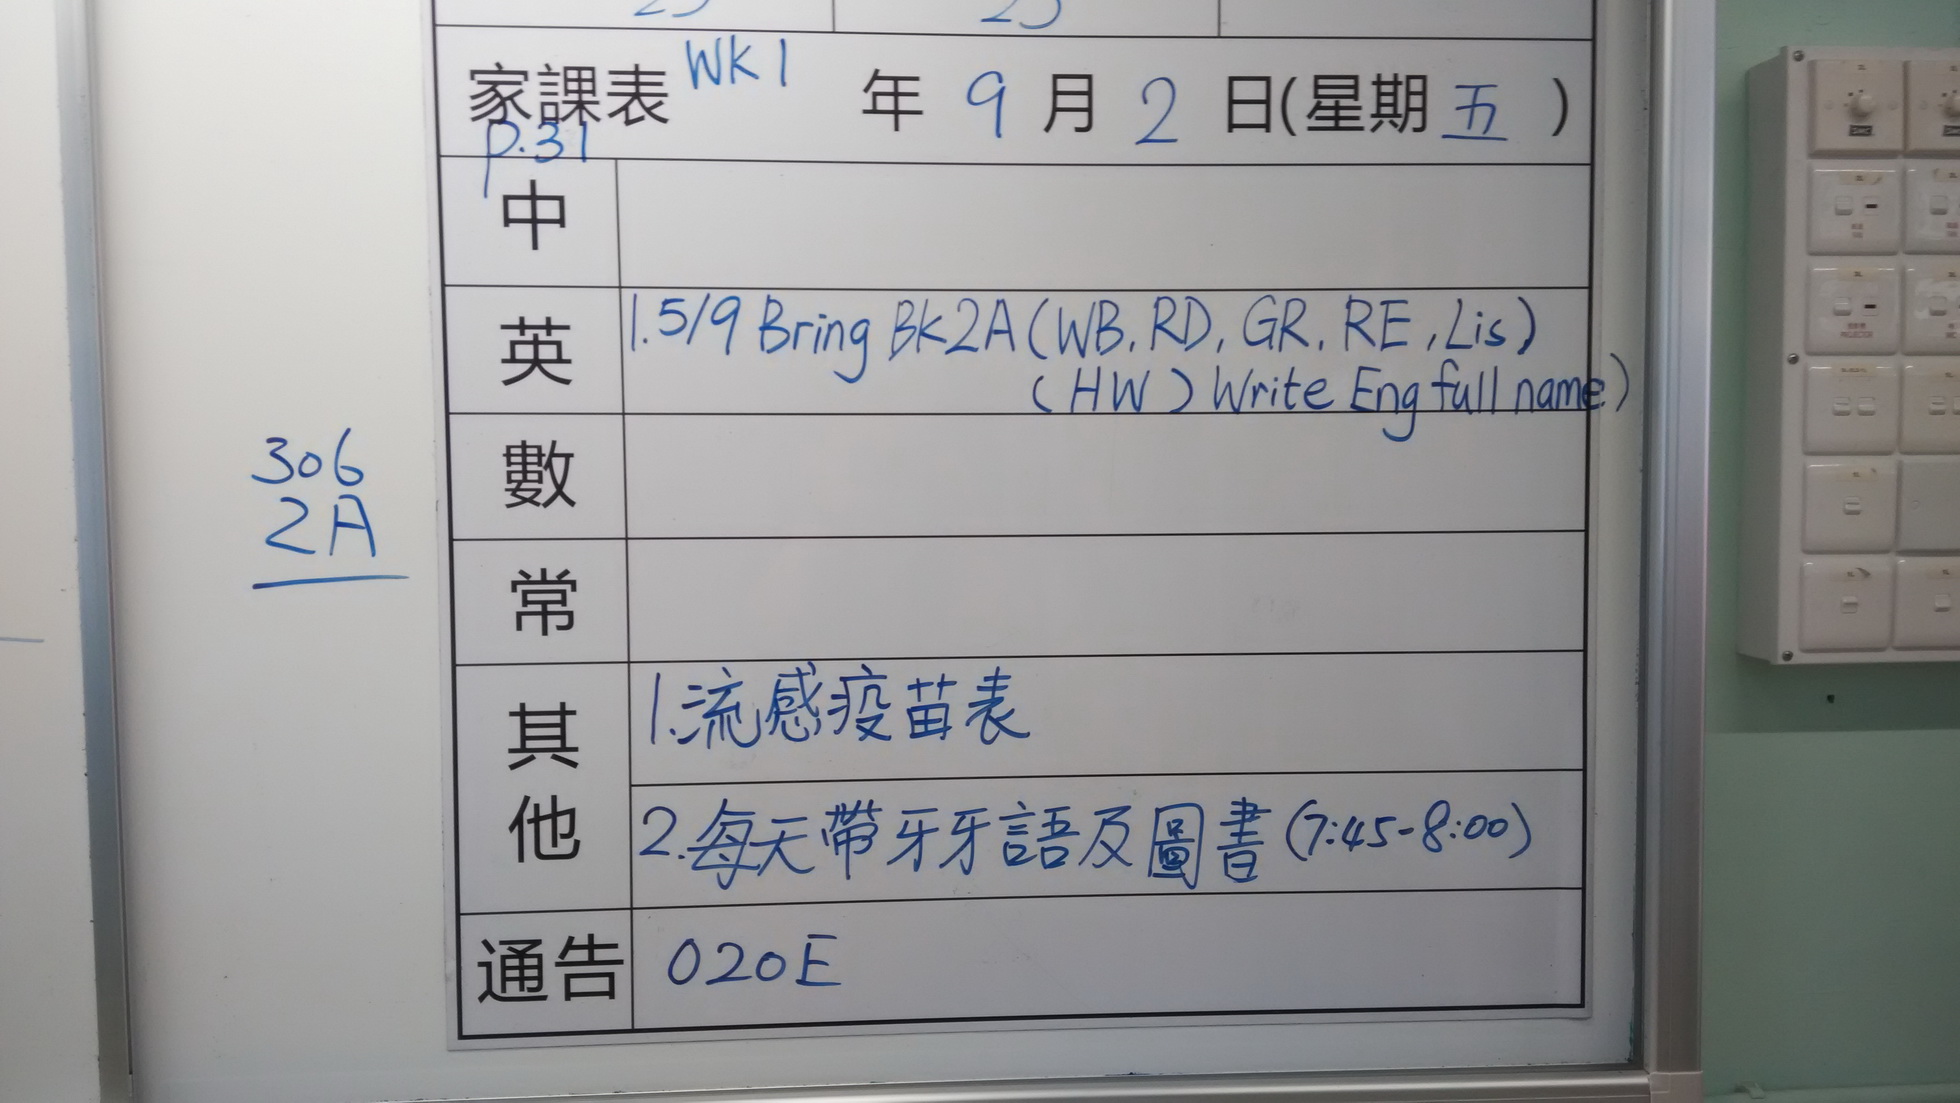 家課表 WK1 年 9 月 2 日(星期 五 )
P.31
中
英 1.5/9 Bring BK2A (WB, RD, GR, RE, Lis)
(HW) Write Eng full name)
數
306
2A
常
其他 1.流感疫苗表
2.每天帶牙牙語及圖書(7:45-8:00)
通告 020E